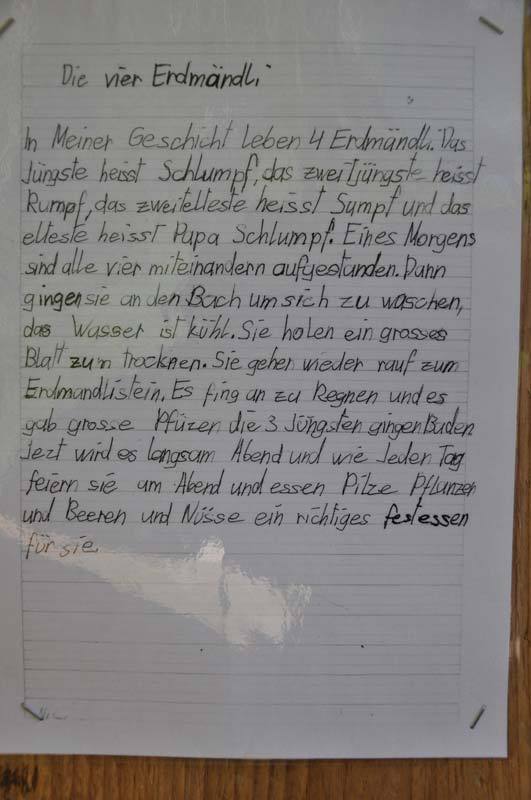 Die vier Erdmändli
In Meiner Geschicht Leben 4 Erdmändli. Das
Jüngste heisst Schlumpf, das zweitjüngste heisst
Rumpf, das zweitelteste heisst Sumpf und das
elteste heisst Pupa Schlumpf. Eines Morgens
sind alle vier miteinandern aufgestunden. Dann
gingen sie an den Bach um sich zu waschen,
das Wasser ist kühl. Sie holen ein grosses
Blatt zum trocknen. Sie gehen wieder rauf zum
Erdmandlistein. Es fing an zu Regnen und es
gab grosse Pfüzen die 3 Jüngsten gingen Baden
Jezt wird es langsam Abend und wie Jeden Tag
feiern sie am Abend und essen Pilze Pflanzen
und Beeren und Nüsse ein richtiges festessen
für sie.